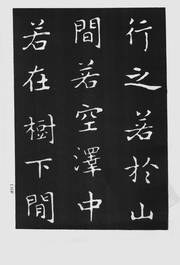 行之若於山
間若空澤中
若在樹下閒